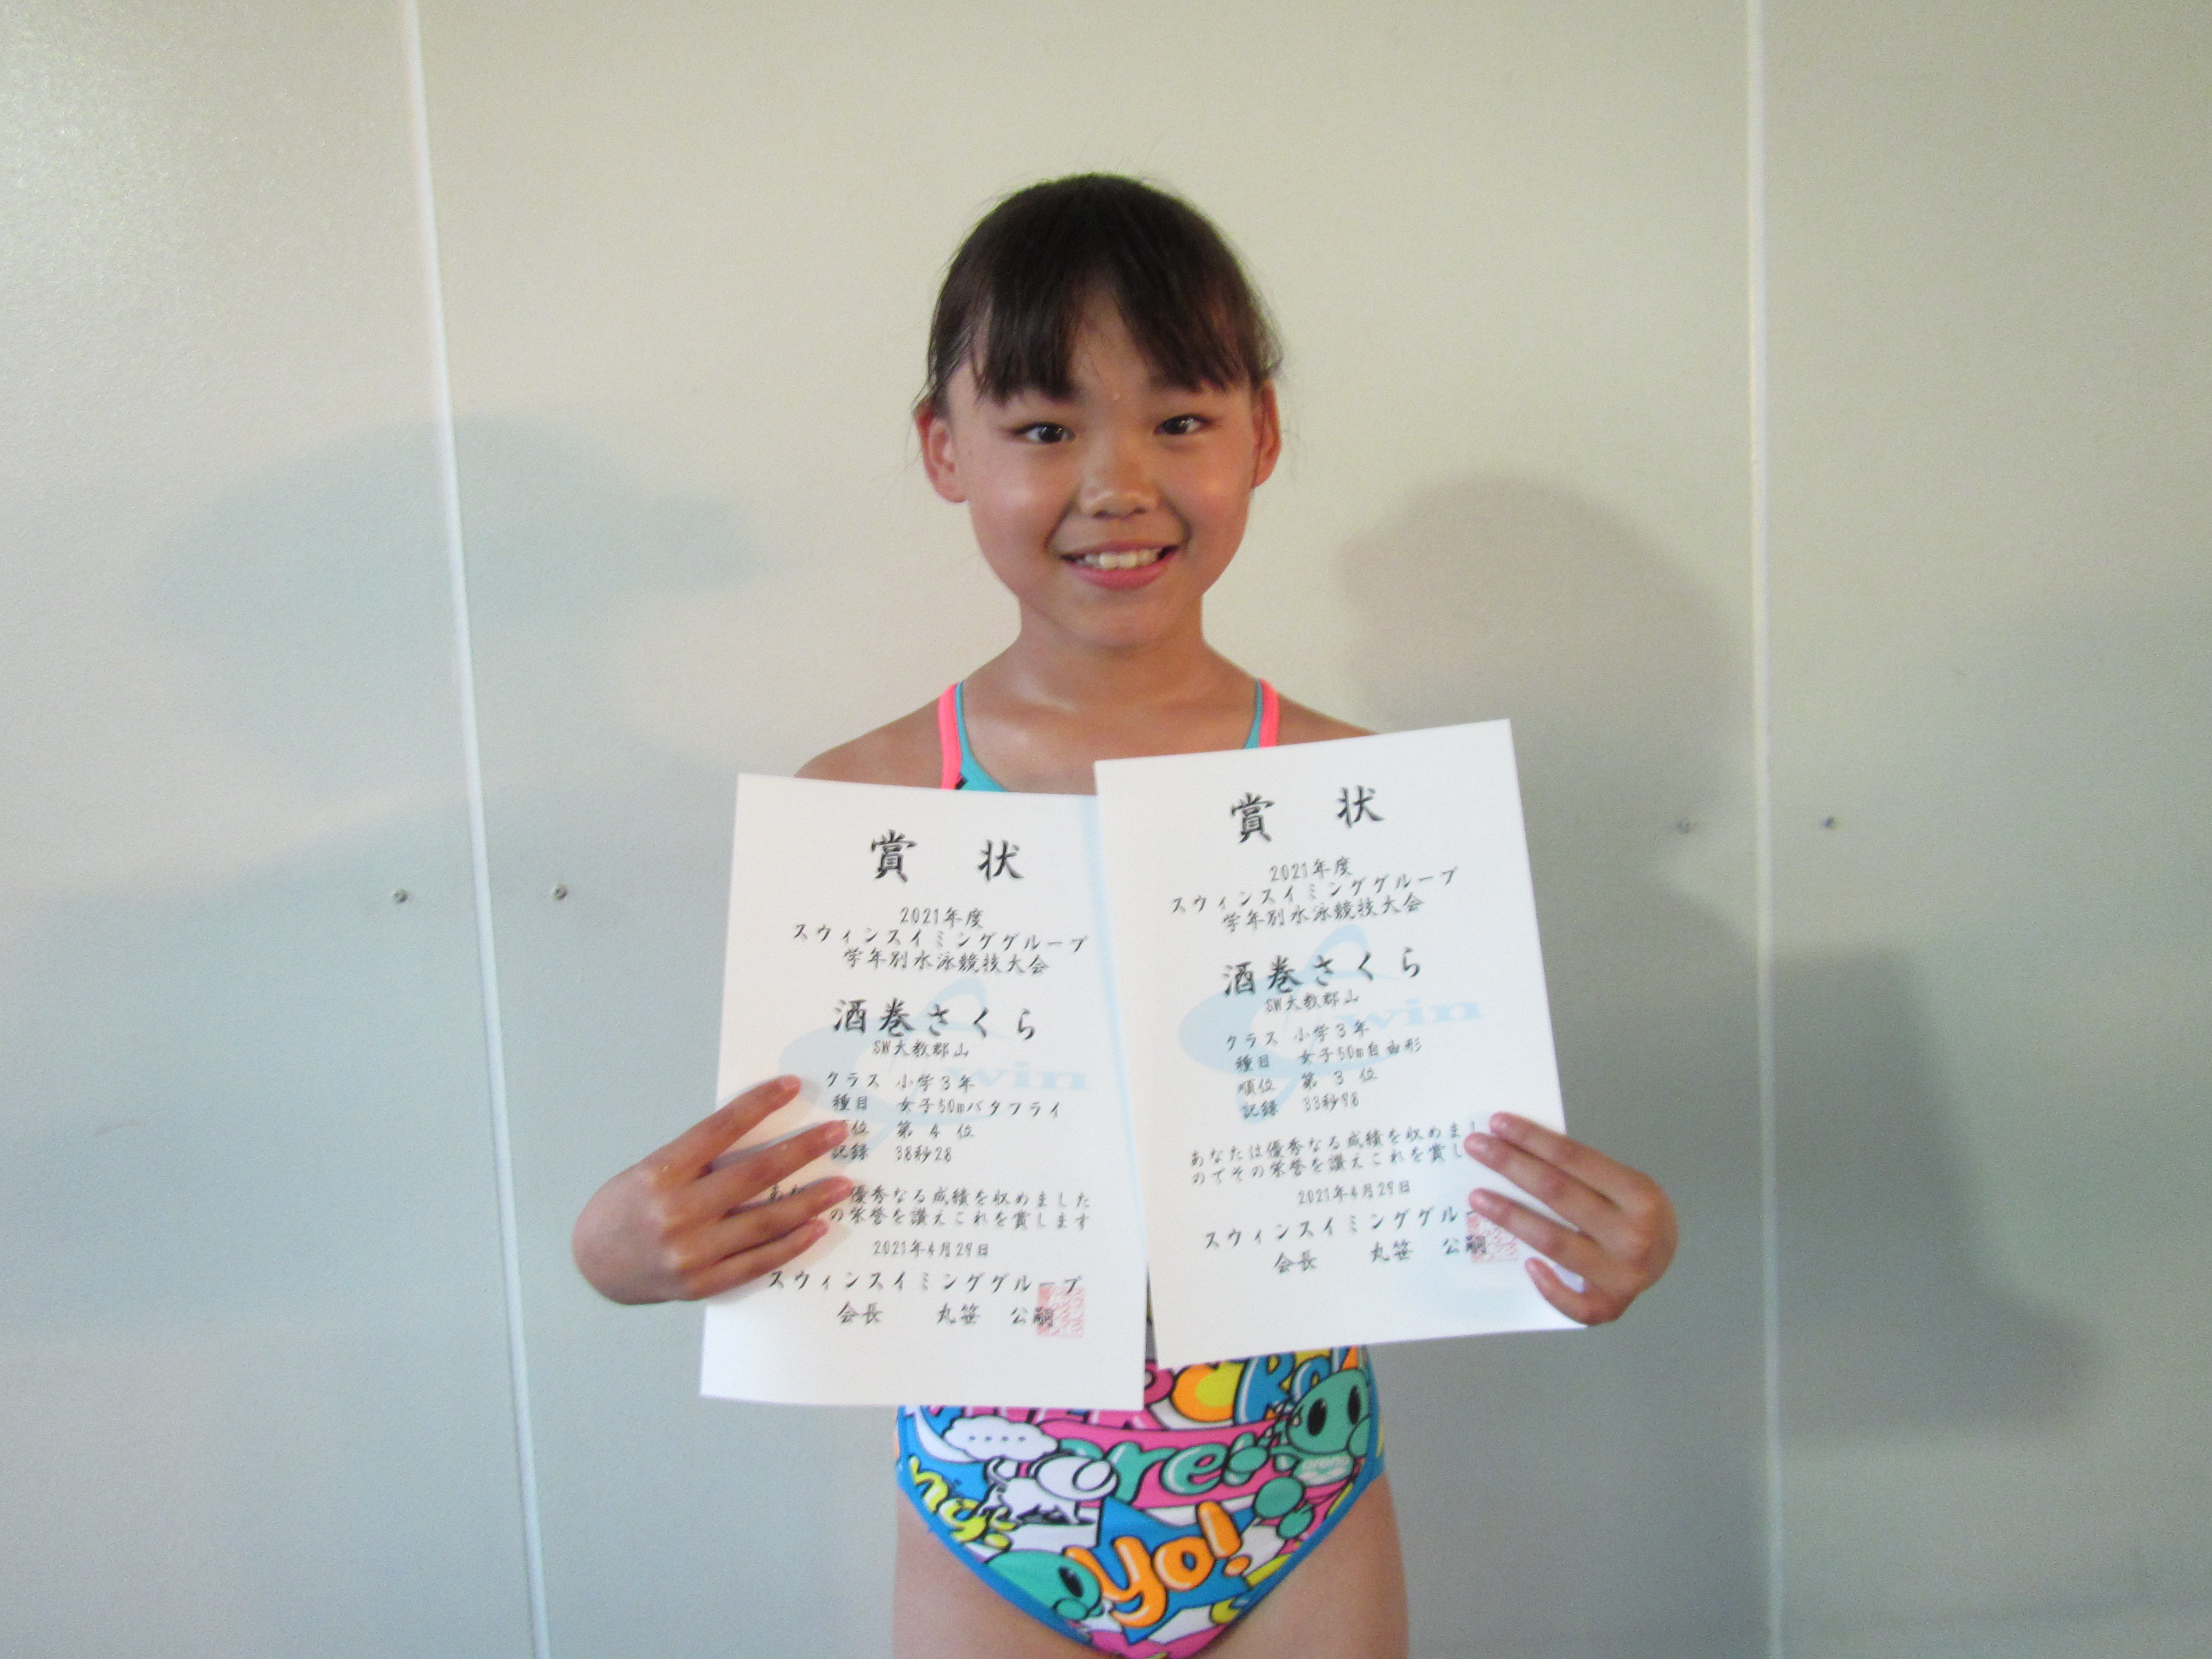 賞 状
2021年度
スウィンスイミンググループ
学年別水泳競技大会
酒巻さくら
SW大教郡山
クラス 小学3年
種目 女子50mバタフライ
位 第 4 位
記録 38秒28
優秀なる成績を収めました
の栄誉を讃えこれを賞します
2021年4月29日
スウィンスイミンググループ
会長 丸笹 公嗣
賞 状
2021年度
スウィンスイミンググループ
学年別水泳競技大会
酒巻さくら
SW大教郡山
クラス 小学3年
種目 女子50m自由形
順位 第 3 位
記録 33秒98
あなたは優秀なる成績を収めまし
のでその栄誉を讃えこれを賞し
2021年4月29日
スウィンスイミンググルー
会長 丸笹 公嗣
win
win
Yo!
arena